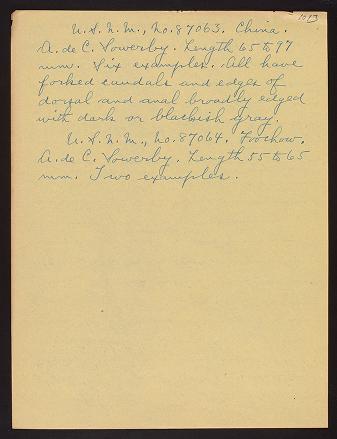 1013
U.S.N.M., No. 87063. China.
A. de C. Sowerby. Length 65 to 97
mm. Six examples. All have
forked caudals and edges of
dorsal and anal broadly edged
with dark or blackish gray.
U.S.N.M., No. 87064. Foochow.
A. de C. Sowerby. Length 55 to 65
mm. Two examples.